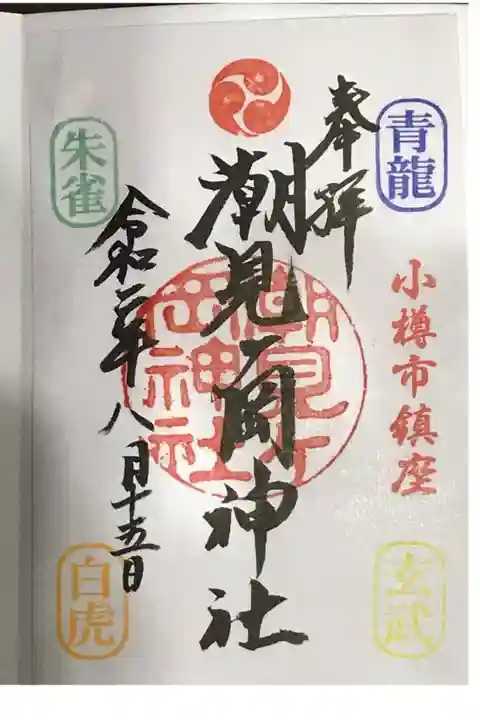 青龍
奉拝
小樽市鎮座
玄武
潮見ヶ岡神社
潮見ヶ岡神社
朱雀
令和二年八月十五日
白虎